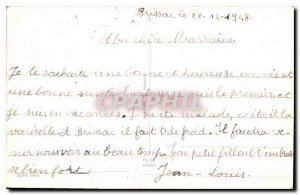 Brissac le 28-12-1948.
Ma chère Marraine
Je te souhaite une bonne et heureuse année et
une bonne santé. je suis le premier et
je suis en vacances. J'ai été malade, c'était la
varicelle et Brissac il fait très froid. Il faudra
venir nous voir au beau temp. Ton petit filleul t'embrasse
bien fort Jean-Louis.